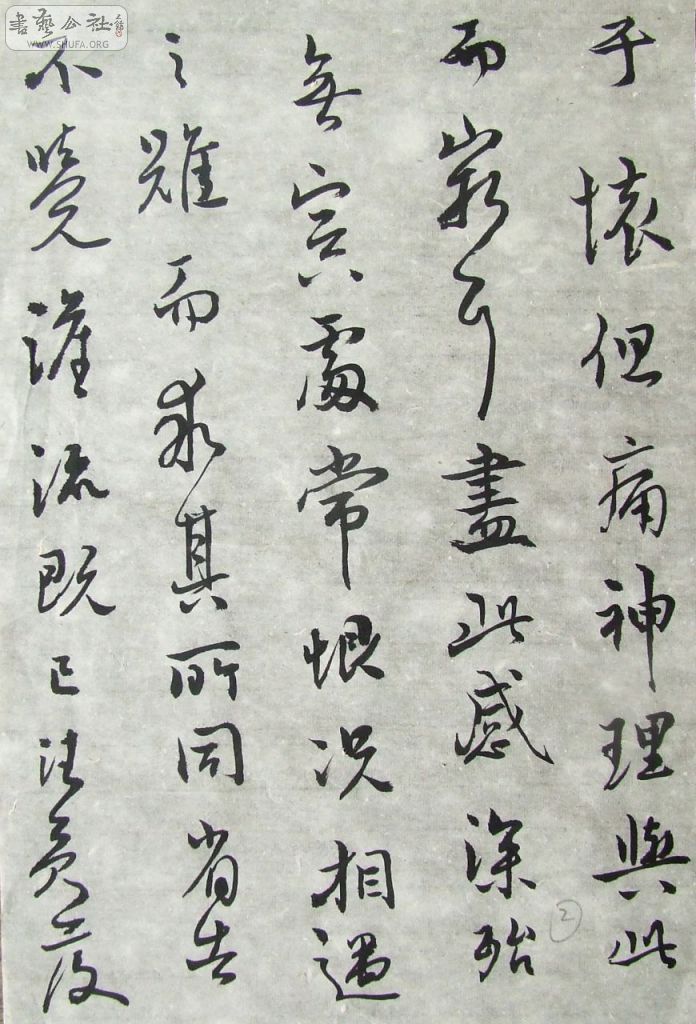 書藝公社
WWW.SHUFA.ORG
于懷但痛神理與此
而窮耳盡此感深殆
無寘處常恨況相遇
之難而求其所同省告
不覺漼流既已往復
2